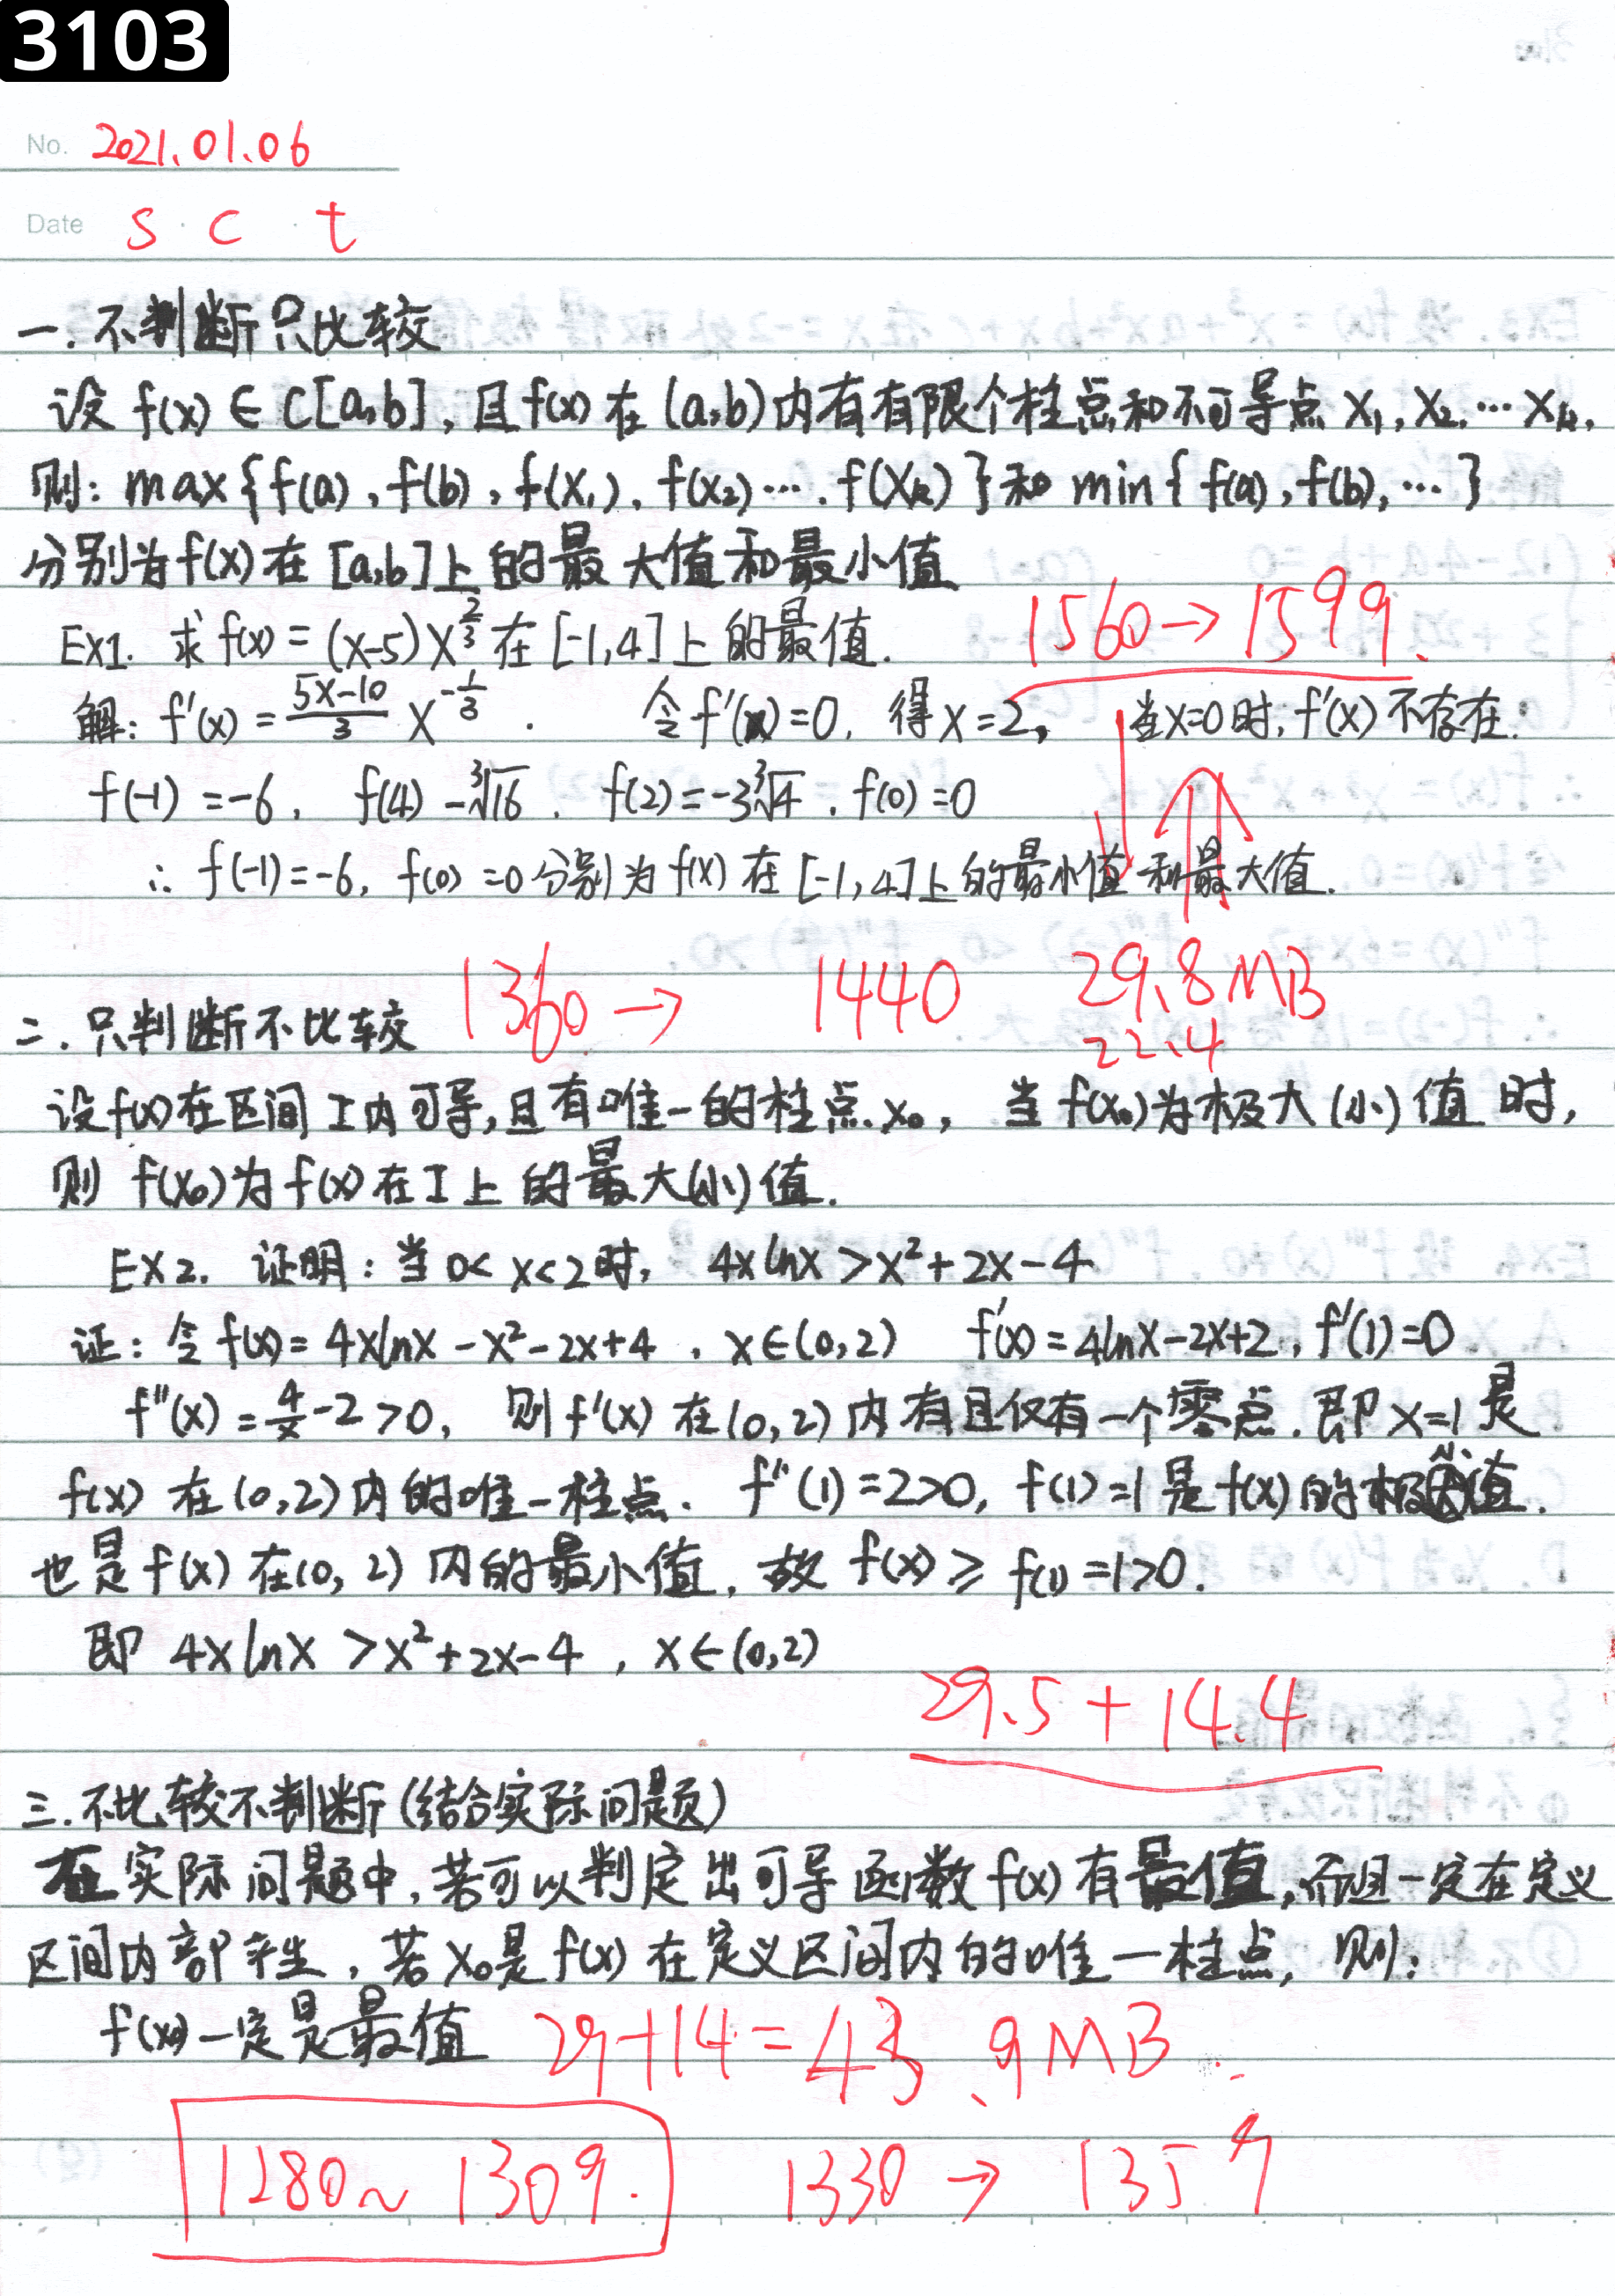 3103
No. 2021.01.06
Date S · C · t
一.不判断只比较
设 f(x) ∈ C[a,b], 且f(x) 在 (a,b)内有有限个桩点和不可导点 X₁, X₂, … Xₖ,
则: max{f(a), f(b), f(X₁), f(X₂)…, f(Xₖ)}和 min{f(a), f(b), …}
分别为f(x)在 [a,b]上的最大值和最小值
1560→1599.
EX1. 求 f(x) = (x-5)X^(2/3) 在 [-1,4]上的最值.
解: f'(x) = (5x-10)/3 X^(-1/3). 令f'(x)=0, 得X=2, 当X=0时, f'(X)不存在.
f(-1) = -6, f(4) -∛16. f(2) = -3∛4. f(0)=0
∴ f(-1)=-6, f(0)=0分别为f(x)在[-1,4]上的最小值和最大值.
1360→ 1440 29.8MB
22.4
二.只判断不比较
设f(x)在区间I内可导,且有唯一的桩点X₀, 当f(x₀)为极大(小)值时,
则 f(x₀)为f(x)在I上的最大(小)值.
EX2. 证明:当0<x<2时, 4xlnx>x²+2x-4
证: 令f(x)=4xlnx-x²-2x+4, x∈(0,2) f'(x)=4lnx-2x+2, f'(1)=0
f''(x)=4/x-2>0, 则f'(x)在(0,2)内有且仅有一个零点.即X=1是
f(x)在(0,2)内的唯一桩点. f''(1)=2>0, f(1)=1是f(x)的极小值.
也是f(x)在(0,2)内的最小值,故f(x)≥f(1)=1>0.
即 4xlnx>x²+2x-4, x∈(0,2)
29.5+14.4
三.不比较不判断(结合实际问题)
在实际问题中,若可以判定出可导函数f(x)有最值,而且一定在定义
区间内部产生,若X₀是f(x)在定义区间内的唯一桩点,则:
f(x₀)一定是最值
29+14=43.9MB
1280~1309. 1330→1359